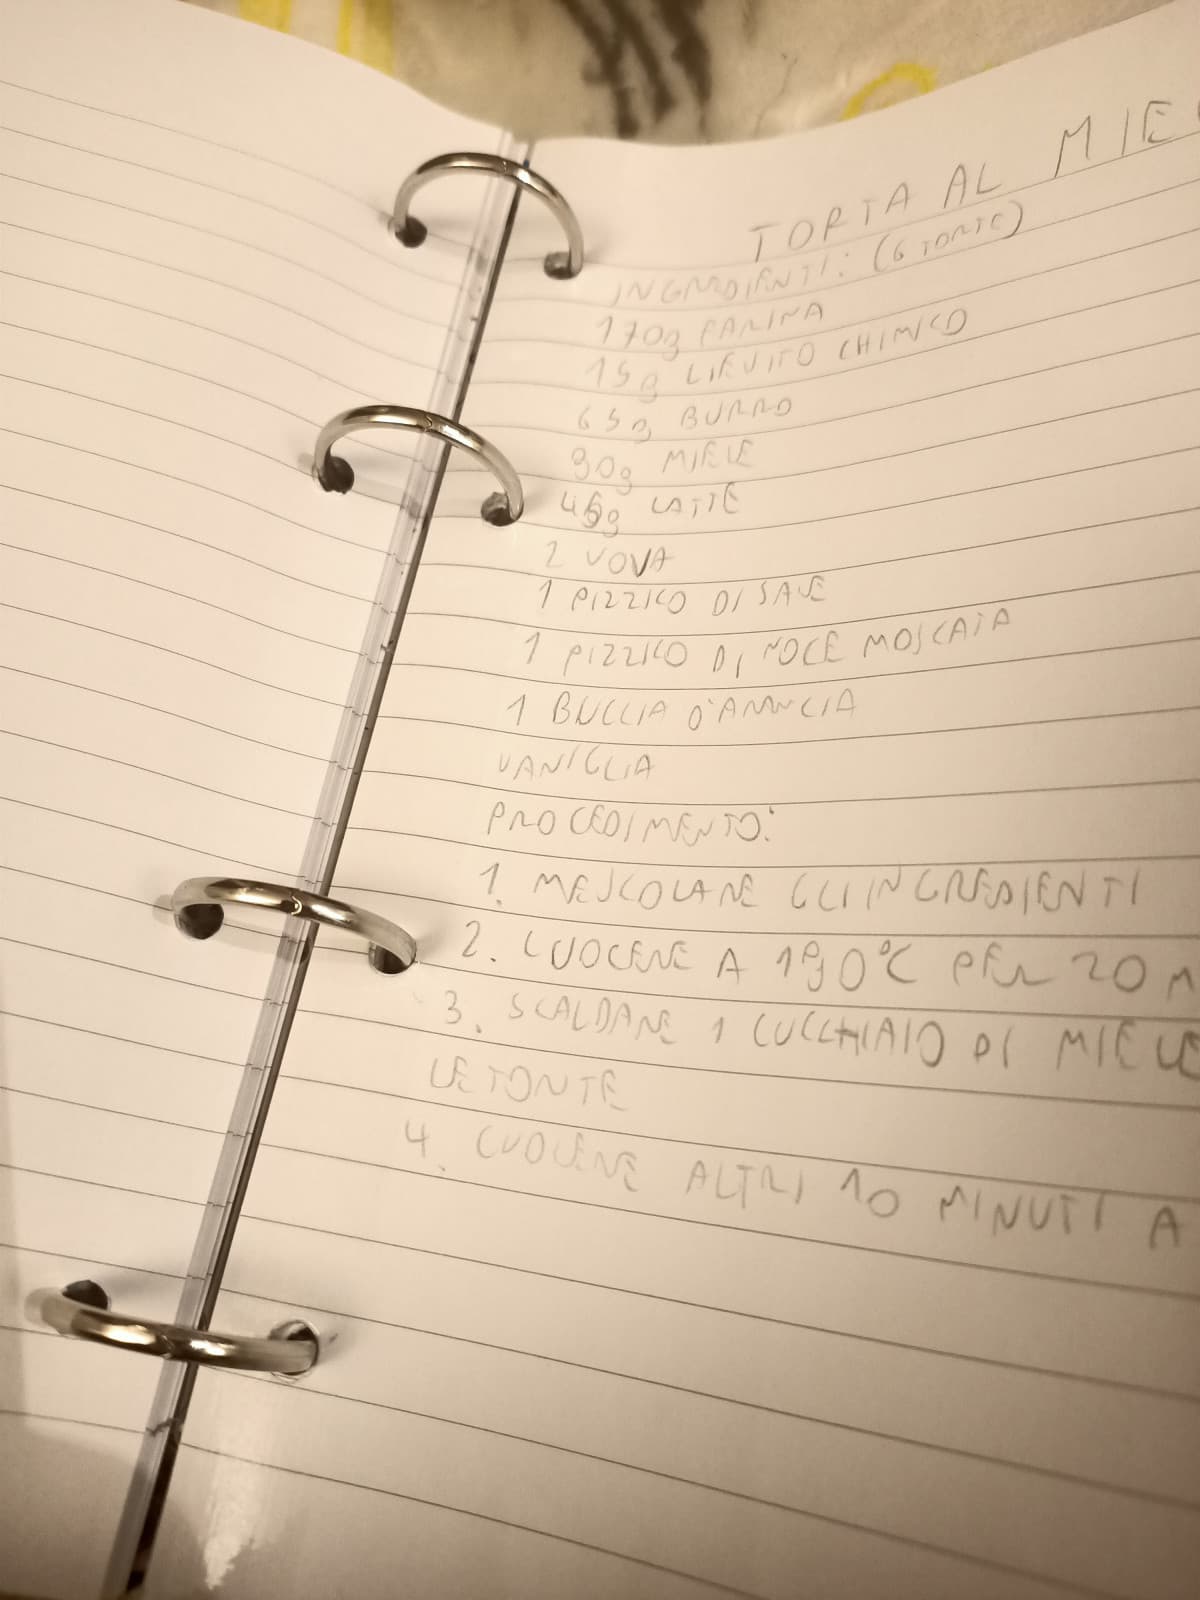 TORTA AL MIE
INGREDIENTI: (6 TORTE)
170g FARINA
15g LIEVITO CHIMICO
65g BURRO
90g MIELE
45g LATTE
2 UOVA
1 PIZZICO DI SALE
1 PIZZICO DI NOCE MOSCATA
1 BUCCIA D'ARANCIA
VANIGLIA
PROCEDIMENTO:
1. MESCOLARE GLI INGREDIENTI
2. CUOCERE A 190°C PER 20 M
3. SCALDARE 1 CUCCHIAIO DI MIELE
LE TORTE
4. CUOCERE ALTRI 10 MINUTI A